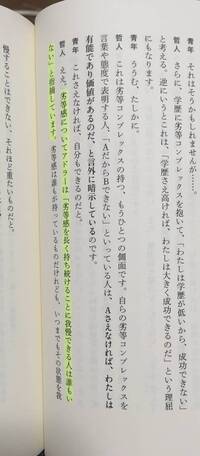 青年　　もしれませんが……。
哲人　さらに、学歴に劣等コンプレックスを抱いて、「わたしは学歴が低いから、成功できない」
と考える。逆にいうとこれは、「学歴さえ高ければ、わたしは大きく成功できるのだ」という理屈
にもなります。
青年　ううむ、たしかに。
哲人　これは劣等コンプレックスの持つ、もうひとつの側面です。自らの劣等コンプレックスを
言葉や態度で表明する人、「AだからBできない」といっている人は、Aさえなければ、わたしは
有能であり価値があるのだ、と言外に暗示しているのです。
青年　これさえなければ、自分もできるのだと。
哲人　ええ。劣等感についてアドラーは「劣等感を長く持ち続けることに我慢できる人は誰もい
ない」と指摘しています。劣等感は誰もが持っているものだけれども、いつまでもその状態を我
慢することはできない、それほど重たいものだと。